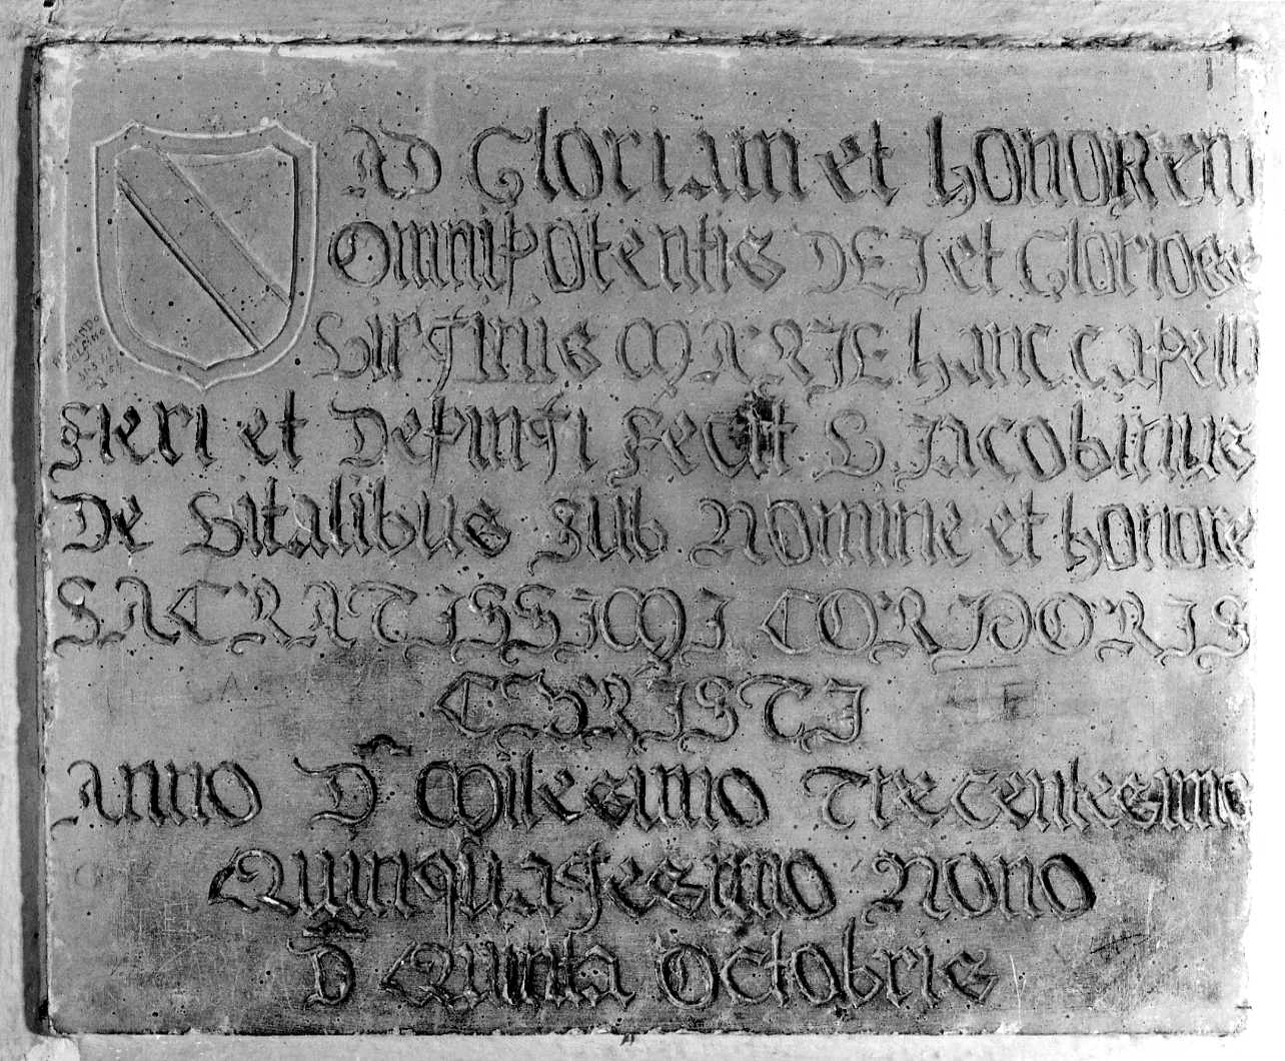 AD Gloriam et honorem
Omnipotentis DEI et Gloriose
Virginis MARIE hanc capellā
Fieri et Depingi Fecit S. Jacobinus
De Vitalibus sub Nomine et honore
SACRATISSIMI CORPORIS
CHRISTI
Anno Dn̄ Milesimo Trecentesimo
Quinquagesimo Nono
D̄ Quinta Octobris